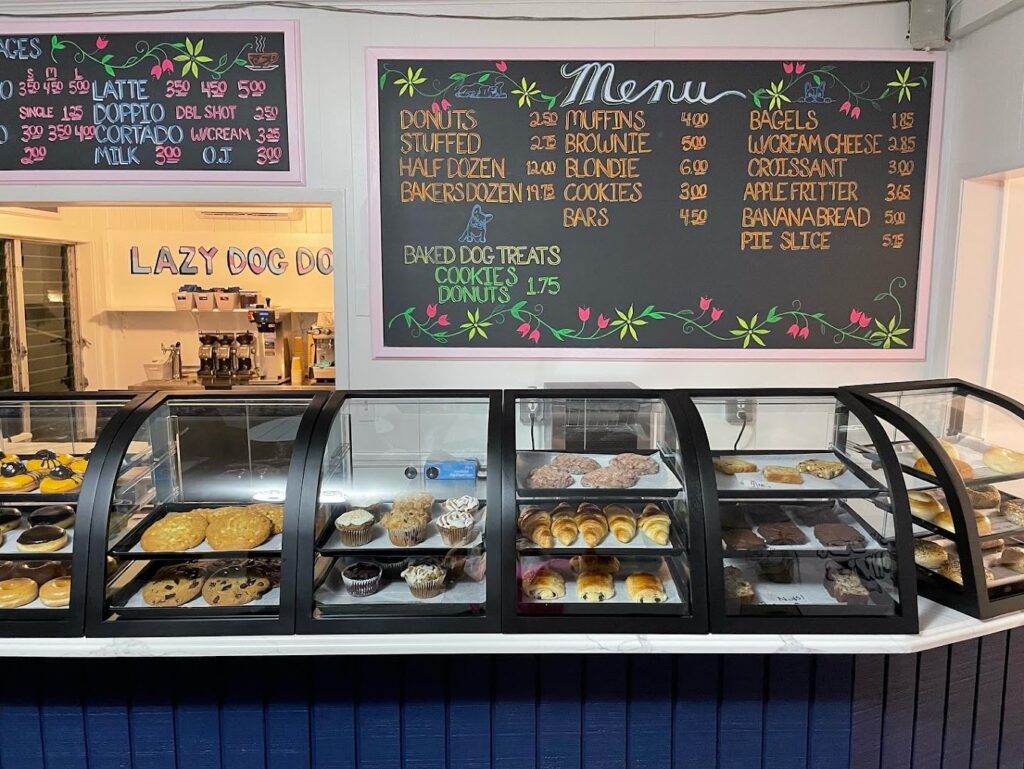 AGES
S M L
350 450 500
SINGLE 1.25
300 350 400
200
LATTE 350 450 500
DOPPIO DBL SHOT 250
CORTADO W/CREAM 325
MILK 300 O.J. 300
LAZY DOG DO
Menu
DONUTS 2.50
STUFFED 2.75
HALF DOZEN 12.00
BAKERS DOZEN 19.75
MUFFINS 4.00
BROWNIE 5.00
BLONDIE 6.00
COOKIES 3.00
BARS 4.50
BAGELS 1.85
W/CREAM CHEESE 2.85
CROISSANT 3.00
APPLE FRITTER 3.65
BANANA BREAD 5.00
PIE SLICE 5.75
BAKED DOG TREATS
COOKIES
DONUTS 1.75